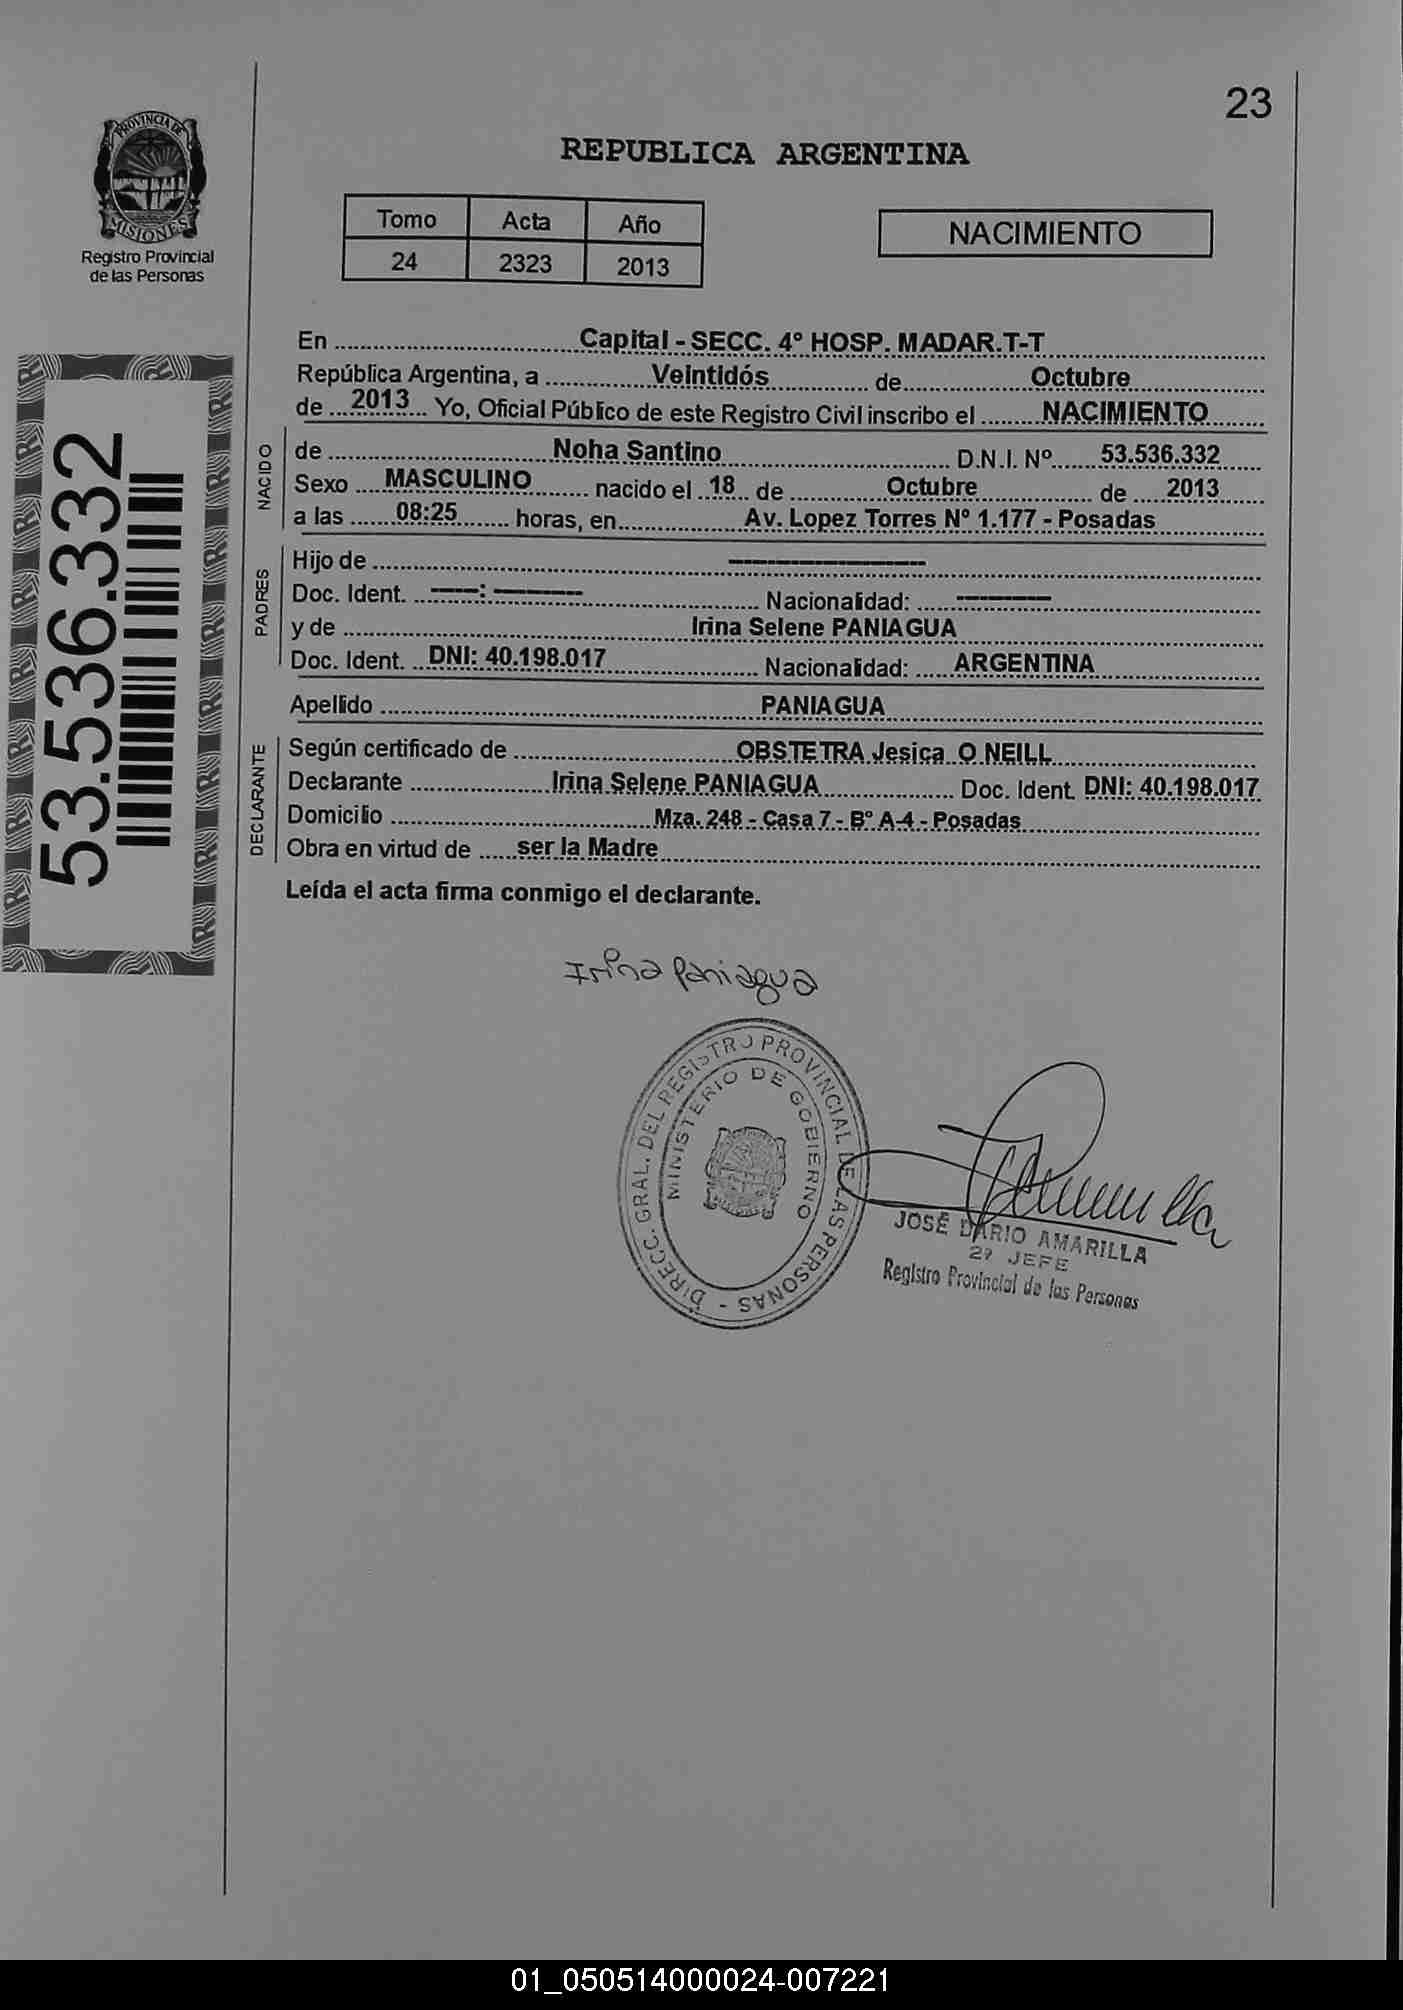 23
PROVINCIA DE
MISIONES
Registro Provincial
de las Personas
REPUBLICA ARGENTINA
Tomo Acta Año
24 2323 2013
NACIMIENTO
53.536.332
En Capital - SECC. 4º HOSP. MADAR.T-T
República Argentina, a Veintidós de Octubre
de 2013 Yo, Oficial Público de este Registro Civil inscribo el NACIMIENTO
NACIDO
de Noha Santino D.N.I. Nº 53.536.332
Sexo MASCULINO nacido el 18 de Octubre de 2013
a las 08:25 horas, en Av. Lopez Torres Nº 1.177 - Posadas
PADRES
Hijo de --------------------
Doc. Ident. -----: --------- Nacionalidad: ----------
y de Irina Selene PANIAGUA
Doc. Ident. DNI: 40.198.017 Nacionalidad: ARGENTINA
Apellido PANIAGUA
DECLARANTE
Según certificado de OBSTETRA Jesica O NEILL
Declarante Irina Selene PANIAGUA Doc. Ident. DNI: 40.198.017
Domicilio Mza. 248 - Casa 7 - Bº A-4 - Posadas
Obra en virtud de ser la Madre
Leída el acta firma conmigo el declarante.
Irina Paniagua
DIRECC. GRAL. DEL REGISTRO PROVINCIAL DE LAS PERSONAS -
MINISTERIO DE GOBIERNO
JOSÉ DARIO AMARILLA
2º JEFE
Registro Provincial de las Personas
01_050514000024-007221